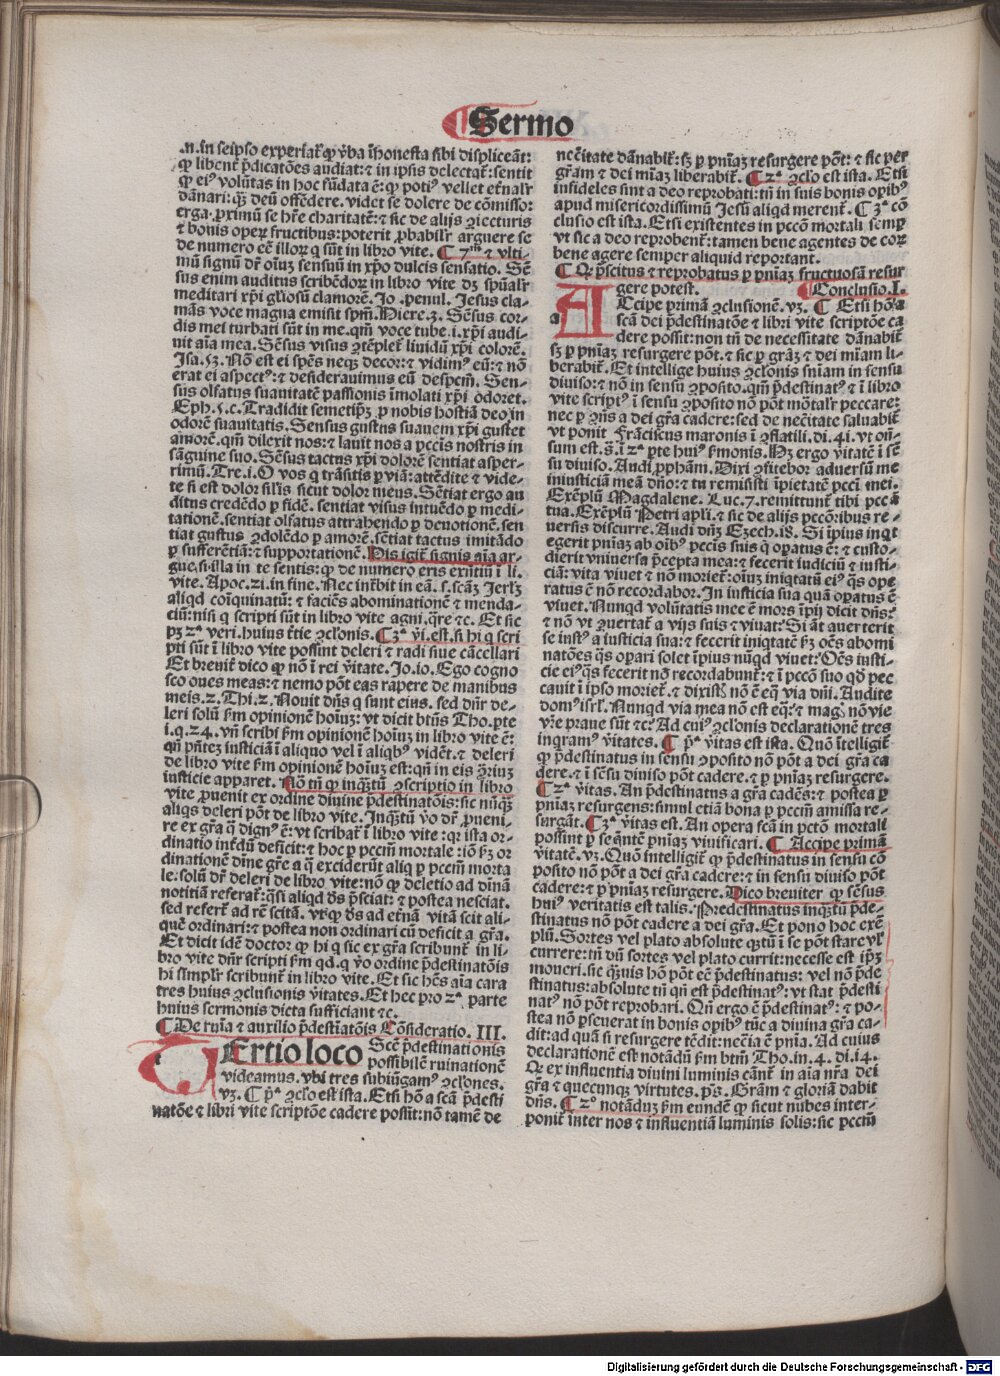 Sermo
.n. in seipso experiat̃ ꝙ v̾ba ĩhonesta sibi displiceãt:
ꝙ libent̾ p̃dicatões audiat: ⁊ in ipsis delectat̃: sentit
ꝙ ei⁹ volũtas in hoc fũdata ẽ: ꝙ poti⁹ vellet et̾nalr̃
dãnari: q̃ꝫ deũ offẽdere. videt se dolere de cõmissor̃
erga ꝓximũ se hr̃e charitatẽ: ⁊ sic de alijs ꝯiecturis
⁊ bonis oper̃ fructibus: poterit ꝓbabilr̃ arguere se
de numero eẽ illor̃ q̃ sũt in libro vite. ¶ 7ᵐ ⁊ vlti-
mũ signũ dr̃ oĩuꝫ sensuũ in xp̃o dulcis sensatio. Sẽ
sus enim auditus scribẽdor̃ in libro vite dꝫ sp̃ualr̃
meditari xp̃i gl̃iosũ clamorẽ. Jo. penul. Jesus cla-
mãs voce magna emisit sp̃m. Hiere.3. Sẽsus cor-
dis mei turbati sũt in me. qm̃ voce tube .i. xp̃i audi-
uit aĩa mea. Sẽsus visus ꝯtẽplet̃ liuidũ xp̃i colorẽ.
Jsa.53. Nõ est ei spẽs neqꝫ decor: ⁊ vidim⁹ eũ: ⁊ nõ
erat ei aspect⁹: ⁊ desiderauimus eũ despcm̃. Sen-
sus olfatus suauitatẽ passionis imolati xp̃i odoret.
Eph.5.c. Tradidit semetip̃ꝫ ꝓ nobis hostiã deo in
odorẽ suauitatis. Sensus gustus suauem xp̃i gustet
amorẽ. qm̃ dilexit nos: ⁊ lauit nos a pcc̃is nostris in
sãguine suo. Sẽsus tactus xp̃i dolorẽ sentiat asper-
rimũ. Tre.i. O vos q̃ trãsitis ꝑ viã: attẽdite ⁊ vide-
te si est dolor sil̃is sicut dolor meus. Sẽtiat ergo au
ditus credẽdo ꝑ fidẽ. sentiat visus intuẽdo ꝑ medi-
tationẽ. sentiat olfatus attrahendo ꝑ deuotionẽ. sen
tiat gustus ꝯdolẽdo ꝑ amorẽ. sẽtiat tactus imitãdo
ꝑ sufferẽtiã: ⁊ supportationẽ. His igit̃ signis aĩa ar-
gue. si illa in te sentis: ꝙ de numero eris exñtiũ ĩ li.
vite. Apoc.21. in fine. Nec intr̃bit in eã .s. scãꝫ Jerl̃ꝫ
aliqd coĩquinatũ: ⁊ faciẽs abominationẽ ⁊ menda-
ciũ: nisi q̃ scripti sũt in libro vite agni. q̃re ⁊c. Et sic
pꝫ 2ᵃ veri. huius t̃tie ꝯcl̃onis. ¶ 3ᵃ v̾i. est. si hi q̃ scri
pti sũt ĩ libro vite possint deleri ⁊ radi siue cãcellari
Et breuit̾ dico ꝙ nõ ĩ rei v̾itate. Jo.10. Ego cogno
sco oues meas: ⁊ nemo põt eas rapere de manibus
meis. 2. Thi.2. Nouit dñs q̃ sunt eius. sed dñr de-
leri solũ ẜm opinionẽ hoĩuꝫ: vt dicit btñs Tho. pte
i.q.24. vñ scribi ẜm opinionẽ hoĩuꝫ in libro vite ẽ:
qñ pñtez iusticiã ĩ aliquo vel ĩ aliqb⁹ vidẽt. ⁊ deleri
de libro vite ẜm opinionẽ hoĩuꝫ est: qñ in eis ꝯ̃riuꝫ
iusticie apparet. Nõ tñ ꝙ inqʒtũ ꝯscriptio in libro
vite ꝓuenit ex ordine diuine p̃destinatõis: sic nũqꝫ
aliqs deleri põt de libro vite. Inqʒtũ v̾o dr̃ ꝓueni-
re ex gr̃a q̃ dign⁹ ẽ: vt scribat̃ ĩ libro vite: qr ista or-
dinatio int̾dũ deficit: ⁊ hoc ꝑ pccm̃ mortale: iõ ẜꝫ or
dinationẽ dr̃ne gr̃e a q̃ exciderũt aliq̃ ꝑ pccm̃ morta
le. solũ dr̃ deleri de libro vite: nõ ꝙ deletio ad diuĩã
notitiã referat̃: q̃si aliqd ds̃ p̃sciat: ⁊ postea nesciat.
sed refert̃ ad rẽ scitã. vtiqꝫ ds̃ ad et̾nã vitã scit ali-
quẽ ordinari: ⁊ postea non ordinari cũ deficit a gr̃a.
Et dicit idẽ doctor ꝙ hi q̃ sic ex gr̃a scribunt̃ in li-
bro vite dñr scripti ẜm qd. q̃ v̾o ordine p̃destinatõis
hi simplr̃ scribunt̃ in libro vite. Et sic hẽs aĩa cara
tres huius ꝯclusionis v̾itates. Et hec pro 2ᵃ parte
huius sermonis dicta sufficiant ⁊c.
¶ De ruĩa ⁊ auxilio p̃destĩatõis Cõsideratio. III.
TErtio loco Scẽ p̃destinationis
possibilẽ ruinationẽ
videamus. vbi tres subiũgam⁹ ꝯcl̃ones.
vꝫ. ¶ pᵃ ꝯcl̃o est ista. Etsi hõ a scã p̃desti
natõe ⁊ libri vite scriptõe cadere possit: nõ tamẽ de
nec̃itate dãnabit̃: sꝫ ꝑ pñiaꝫ resurgere põt: ⁊ sic per
gr̃am ⁊ dei miaꝫ liberabit̃. ¶ 2ᵃ ꝯcl̃o est ista. Etsi
infideles sint a deo reprobati: tñ in suis bonis opib⁹
apud misericordissimũ Jesũ aliqd merent̃. ¶ 3ᵃ cõ
clusio est ista. Etsi existentes in pccõ mortali semp̃
vt sic a deo reprobent̃: tamen bene agentes de cor̃
bene agere semper aliquid reportant.
¶ Q p̃scitus ⁊ reprobatus ꝑ pñiaꝫ fructuosã resur
gere potest. ¶ Conclusio.I.
ACcipe primã ꝯclusionẽ. vꝫ. ¶ Etsi hõ a
scã dei p̃destinatõe ⁊ libri vite scriptõe ca
dere possit: non tñ de necessitate dãnabit̃
sꝫ ꝑ pñiaꝫ resurgere põt. ⁊ sic ꝑ grãꝫ ⁊ dei miam li-
berabit̃. Et intellige huius ꝯcl̃onis sniam in sensu
diuiso: ⁊ nõ in sensu ꝯposito. qm̃ p̃destinat⁹ ⁊ ĩ libro
vite script⁹ ĩ sensu ꝯposito nõ põt mõtalr̃ peccare:
nec ꝑ ꝯñs a dei gr̃a cadere: sed de nec̃itate saluabit̃
vt ponit Frãciscus maronis ĩ ꝯflatili. di.41. vt oñ-
sum est. s̃. ĩ 2ᵃ pte hui⁹ ẜmonis. Hꝫ ergo v̾itatẽ ĩ sẽ
su diuiso. Audi ꝓphãm. Dixi ꝯfitebor aduersũ me
iniusticiã meã dño: ⁊ tu remisisti ĩpietatẽ pccĩ mei.
Exẽplũ Magdalene. Luc.7. remittunt̃ tibi pccã
tua. Exẽplũ Petri apl̃i. ⁊ sic de alijs pccõribus re-
uersis discurre. Audi dñꝫ Ezech.18. Si ĩpius inqt
egerit pñiaꝫ ab oĩb⁹ pcc̃is suis q̃ opatus ẽ: ⁊ custo-
dierit vniuersa p̃cepta mea: ⁊ fecerit iudiciũ ⁊ iusti-
ciã: vita viuet ⁊ nõ moriet̃: oĩuꝫ iniqtatũ ei⁹ q̃s ope
ratus ẽ nõ recordabor. In iusticia sua quã opatus ẽ
viuet. Nunqd volũtatis mee ẽ mors ĩpij dicit dñs:
⁊ nõ vt ꝯuertat̃ a vijs suis ⁊ viuat: Si ãt auerterit
se iust⁹ a iusticia sua: ⁊ fecerit iniqtatẽ ẜꝫ oẽs abomi
natões q̃s opari solet ĩpius nũqd viuet: Oẽs iusti-
cie ei⁹ q̃s fecerit nõ recordabunt̃: ⁊ ĩ pccõ suo qd pec
cauit ĩ ipso moriet̃. ⁊ dixist̾ nõ ẽ eq̃ via dñi. Audite
dom⁹ isrl̃. Nunqd via mea nõ est eq̃: ⁊ mag̾ nõ vie
vr̃e praue sũt ⁊c. Ad cui⁹ ꝯcl̃onis declarationẽ tres
inqram⁹ v̾itates. ¶ pᵃ v̾itas est ista. Quõ ĩtelligit̃
ꝙ p̃destinatus in sensu ꝯposito nõ põt a dei gr̃a ca
dere. ⁊ ĩ sẽsu diuiso põt cadere. ⁊ ꝑ pñiaꝫ resurgere.
¶ 2ᵃ v̾itas. An p̃destinatus a gr̃a cadẽs: ⁊ postea ꝑ
pñiaꝫ resurgens: simul etiã bona ꝑ pccm̃ amissa re-
surgãt. ¶ 3ᵃ v̾itas est. An opera scã in pctõ mortali
possint ꝑ seq̃ntẽ pñiaꝫ viuificari. ¶ Accipe primã
v̾itatẽ. vꝫ. Quõ intelligit̃ ꝙ p̃destinatus in sensu cõ
posito nõ põt a dei gr̃a cadere: ⁊ in sensu diuiso põt
cadere: ⁊ ꝑ pñiaꝫ resurgere. Dico breuiter ꝙ sẽsus
hui⁹ veritatis est talis. Predestinatus inqʒtũ p̃de-
stinatus nõ põt cadere a dei gr̃a. Et pono hoc exẽ
plũ. Sortes vel plato absolute qʒtũ ĩ se põt stare vl̃
currere: tñ dũ sortes vel plato currit: necesse est ip̃ꝫ
moueri. sic q̃uis hõ põt eẽ p̃destinatus: vel nõ p̃de
stinatus: absolute tñ qñ est p̃destinat⁹: vt stat p̃desti
nat⁹ nõ põt reprobari. Qñ ergo ẽ p̃destinat⁹: ⁊ po-
stea nõ ꝑseuerat in bonis opib⁹ tũc a diuina gr̃a ca-
dit: ad quã si resurgere tẽdit: nec̃ia ẽ pñia. Ad cuius
declarationẽ est notãdũ ẜm btm̃ Tho. in.4. di.14.
Q ex influentia diuini luminis cãnt̃ in aĩa nr̃a dei
gr̃a ⁊ quecunqꝫ virtutes. p̃s. Grãm ⁊ gloriã dabit
dñs. ¶ 2° notãduꝫ ẜm eundẽ ꝙ sicut nubes inter-
ponit̃ inter nos ⁊ influentiã luminis solis: sic pccm̃